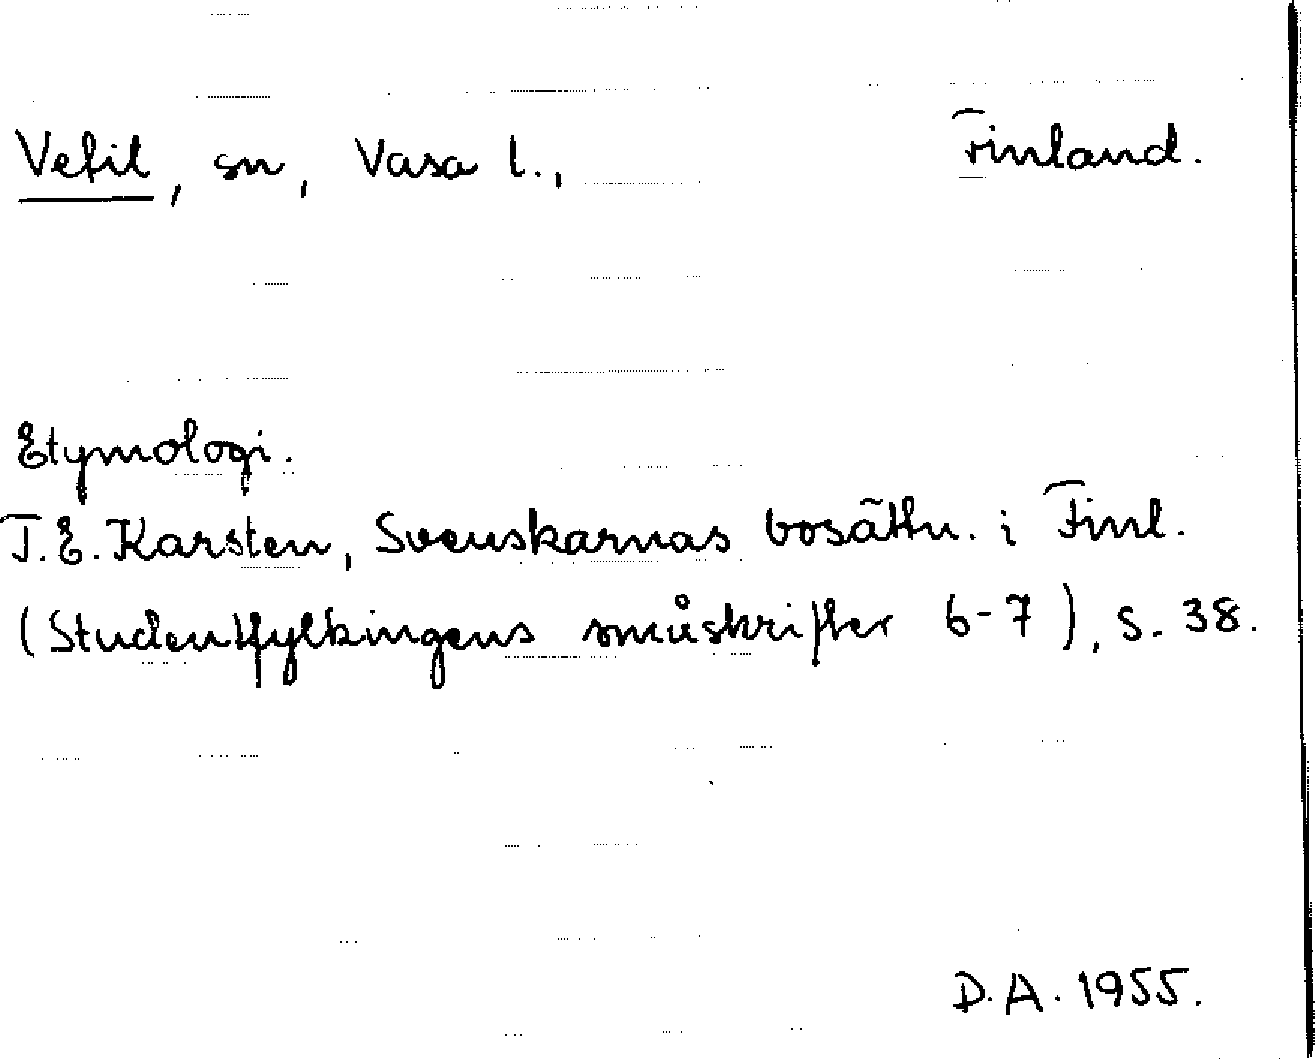 Vetil, sn, Vasa l., Finland.
Etymologi.
T.E. Karsten, Svenskarnas bosättn. i Finl.
(Studentfylkingens småskrifter 6-7), s. 38.
D.A. 1955.